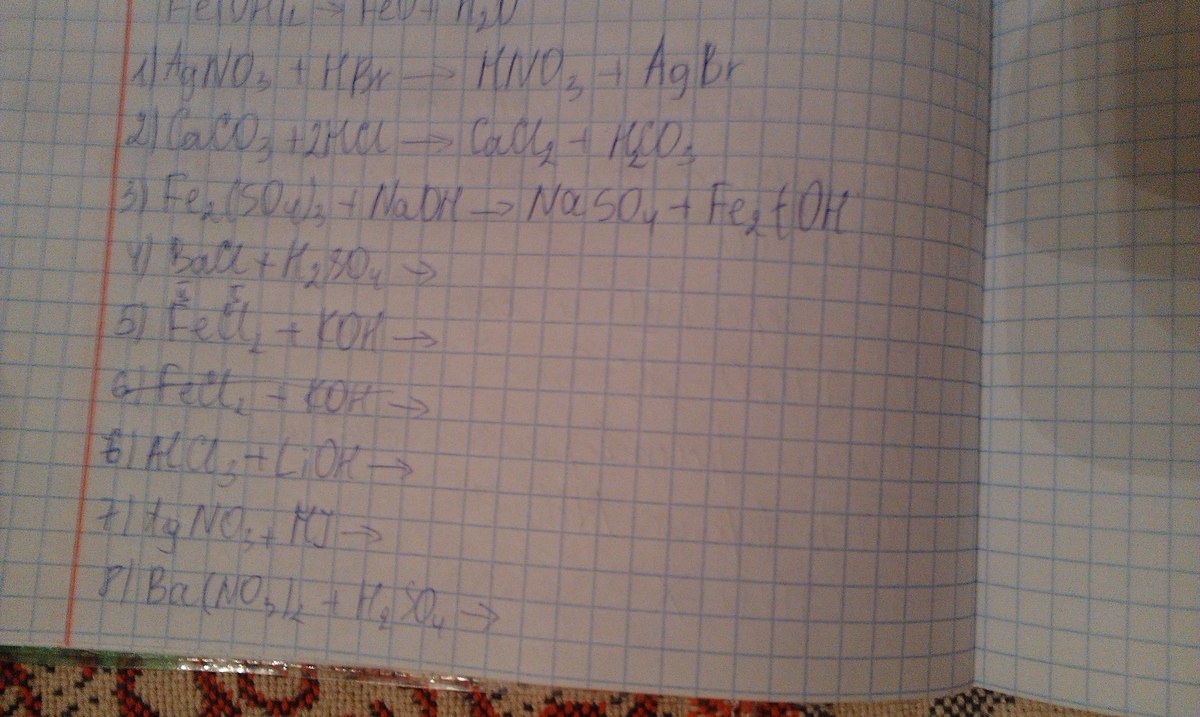 Fe(OH)2 → FeO + H2O
1) AgNO3 + HBr → HNO3 + AgBr
2) CaCO3 + 2HCl → CaCl2 + H2CO3
3) Fe2(SO4)3 + NaOH → NaSO4 + Fe2(OH
4) BaCl + H2SO4 →
II I
5) FeCl2 + KOH →
6) FeCl2 + KOH →
6) AlCl3 + LiOH →
7) AgNO3 + HJ →
8) Ba(NO3)2 + H2SO4 →